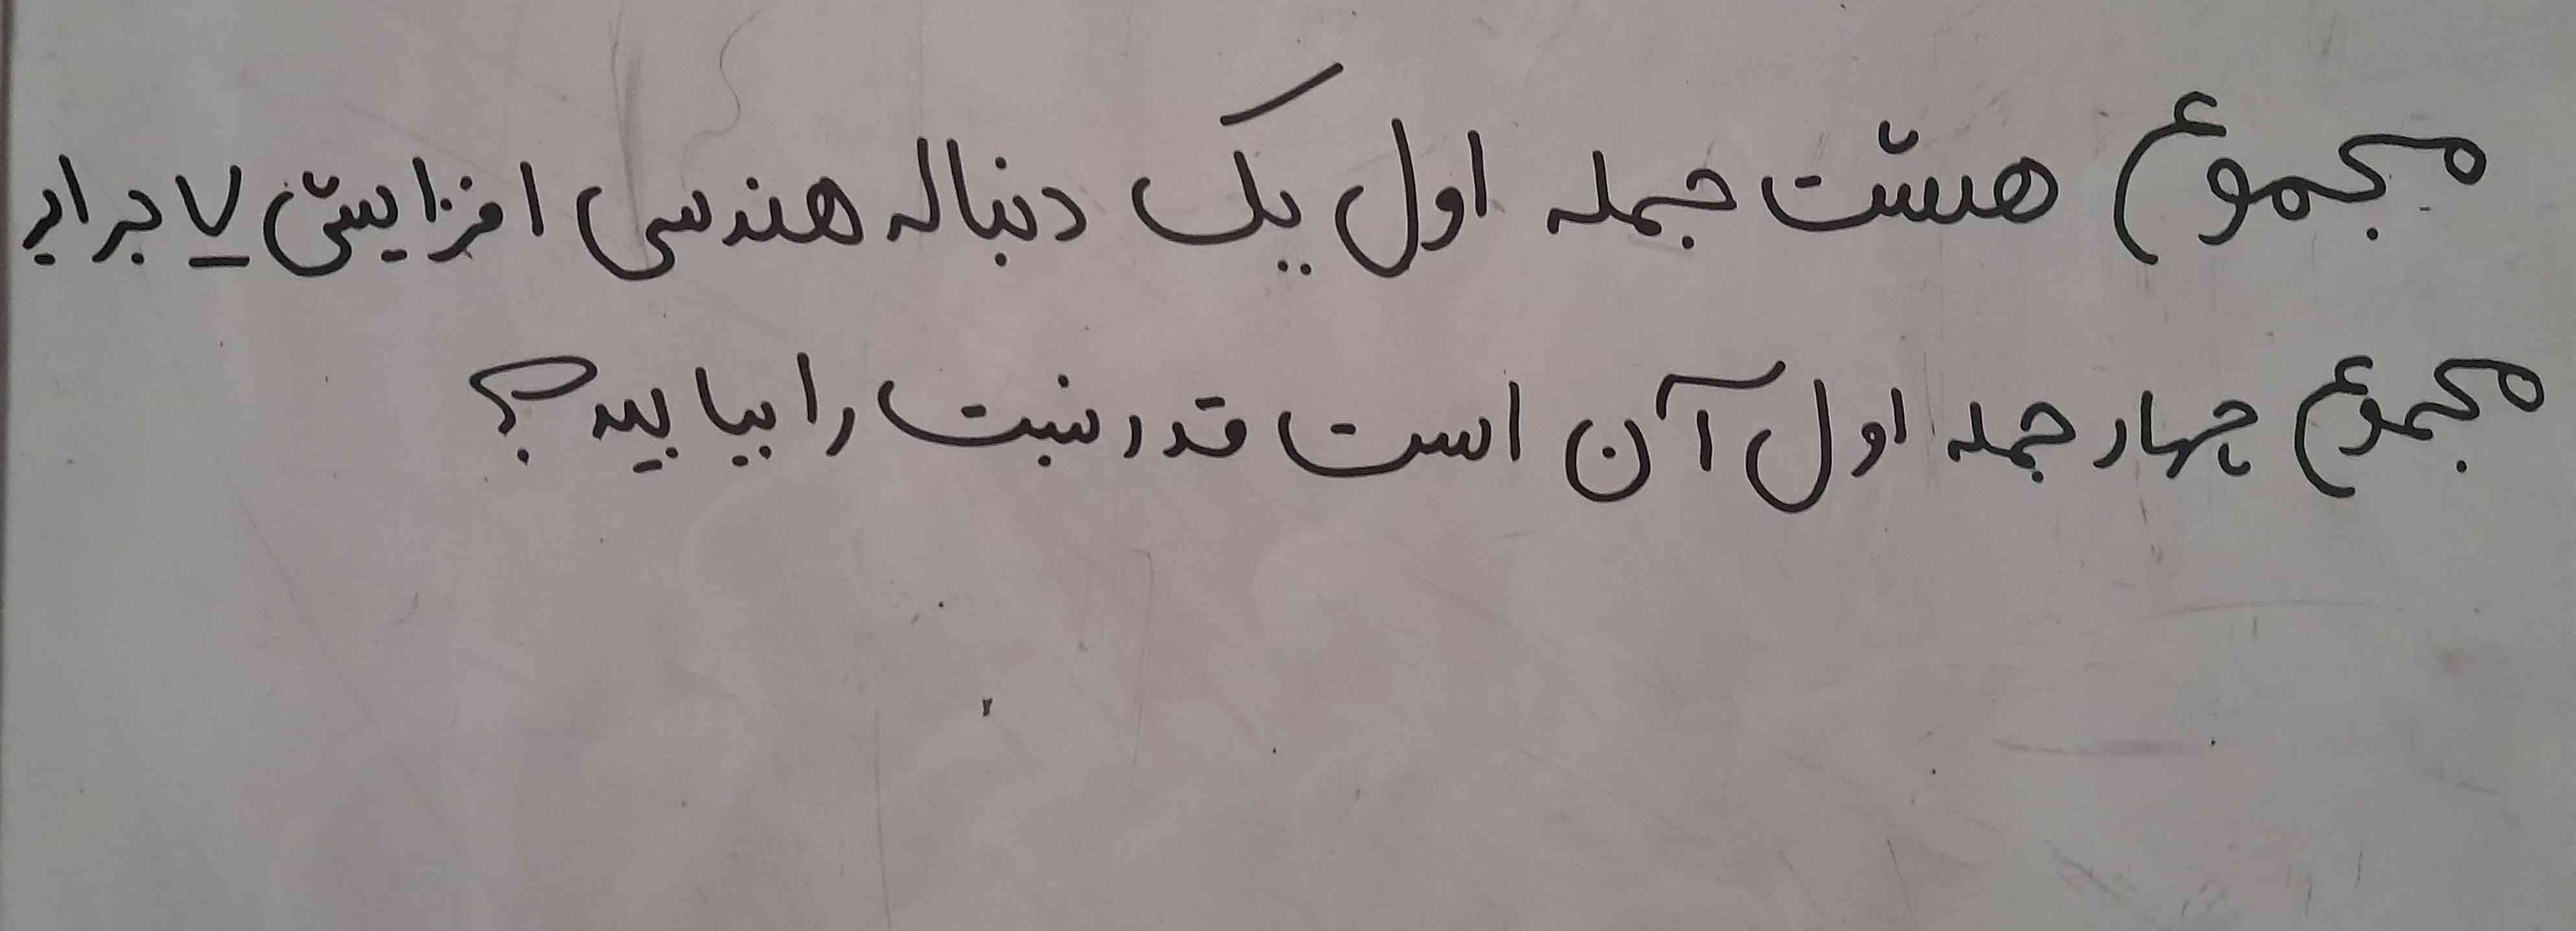 مجموع هشت جمله اول یک دنباله هندسی افزایشی ۷ برابر
مجموع چهار جمله اول آن است قدر نسبت را بیابید؟